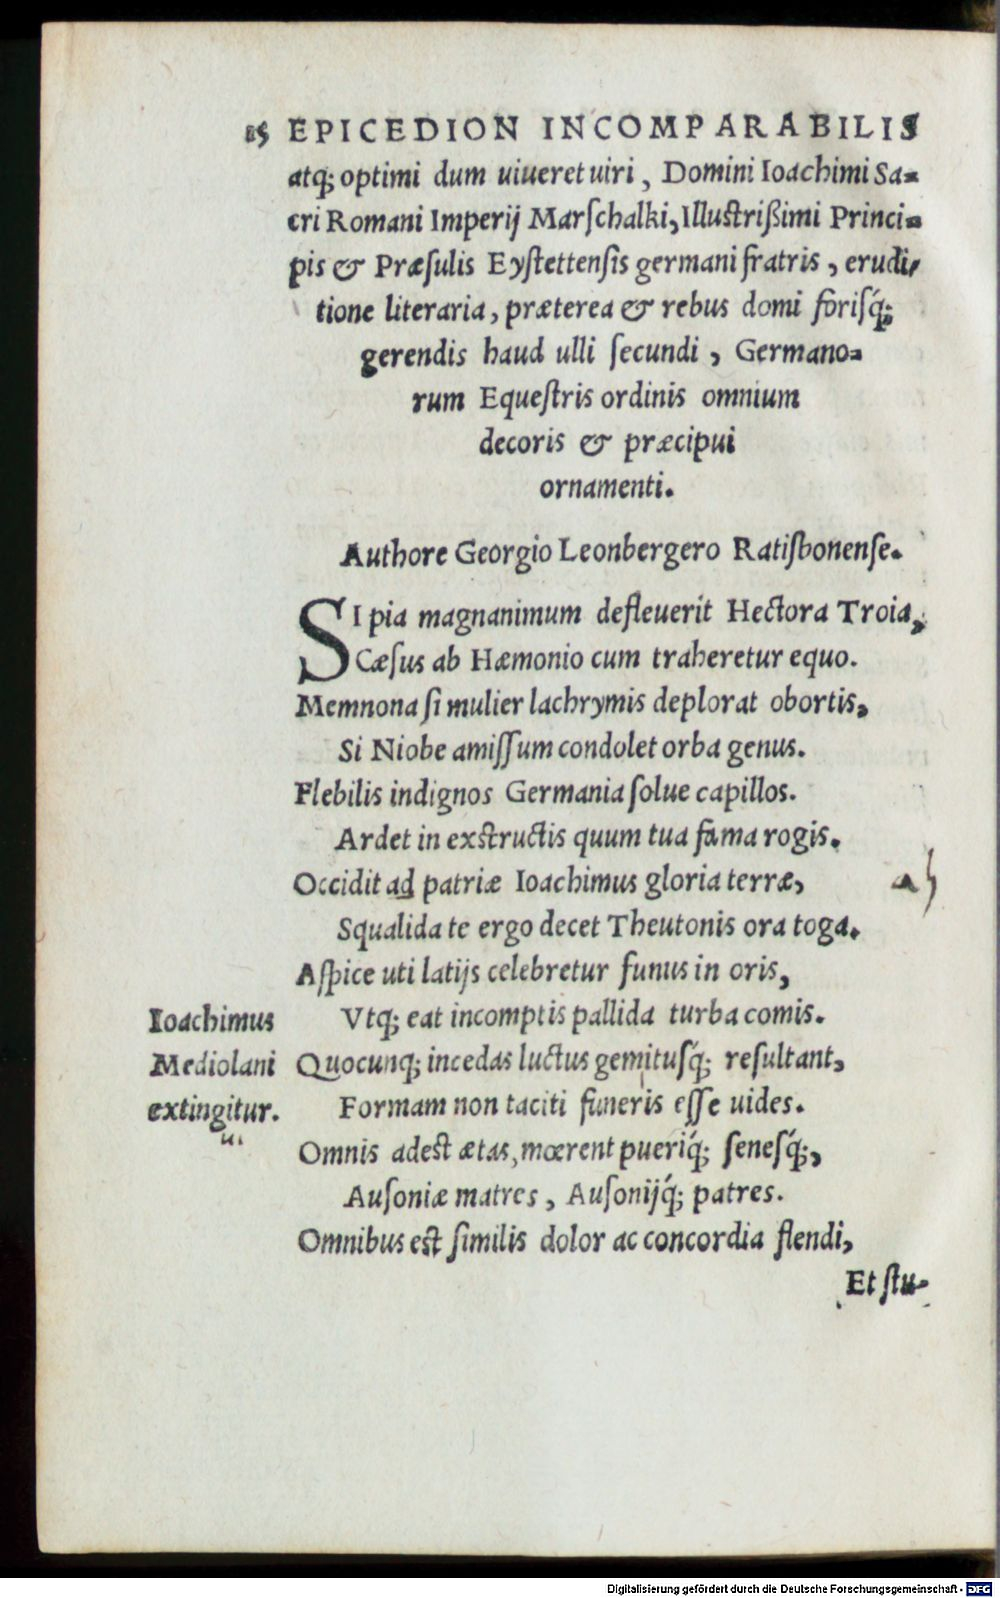 EPICEDION INCOMPARABILIS
atq; optimi dum uiueret uiri, Domini Ioachimi Sa-
cri Romani Imperij Marschalki, Illustrißimi Princi-
pis & Præsulis Eystettensis germani fratris, erudi-
tione literaria, præterea & rebus domi forisq́;
gerendis haud ulli secundi, Germano-
rum Equestris ordinis omnium
decoris & præcipui
ornamenti.
Authore Georgio Leonbergero Ratisbonense.
SI pia magnanimum defleuerit Hectora Troia,
Cæsus ab Hæmonio cum traheretur equo.
Memnona si mulier lachrymis deplorat obortis,
Si Niobe amissum condolet orba genus.
Flebilis indignos Germania solue capillos.
Ardet in exstructis quum tua fama rogis.
Occidit ad patriæ Ioachimus gloria terræ,
ah
Squalida te ergo decet Theutonis ora toga.
Aspice uti latijs celebretur funus in oris,
Vtq; eat incomptis pallida turba comis.
Ioachimus
Mediolani
extingitur.
ui
Quocunq; incedas luctus gemitusq́; resultant,
Formam non taciti funeris esse uides.
Omnis adest ætas, mœrent pueriq́; senesq́;,
Ausoniæ matres, Ausonijq́; patres.
Omnibus est similis dolor ac concordia flendi,
Et stu-
Digitalisierung gefördert durch die Deutsche Forschungsgemeinschaft - DFG